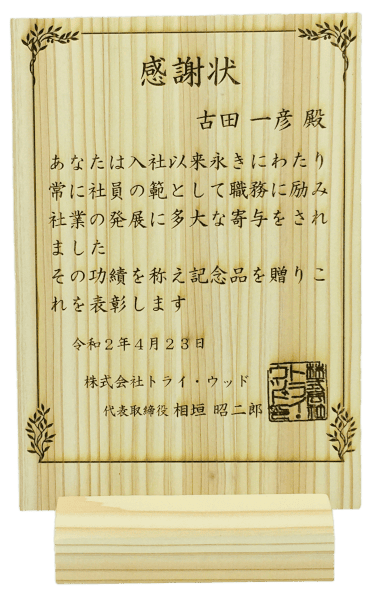 感謝状
古田 一彦 殿
あなたは入社以来永きにわたり
常に社員の範として職務に励み
社業の発展に多大な寄与をされ
ました
その功績を称え記念品を贈りこ
れを表彰します
令和2年4月23日
株式会社トライ・ウッド
代表取締役 相垣 昭二郎
株式会社
トライ・
ウッド